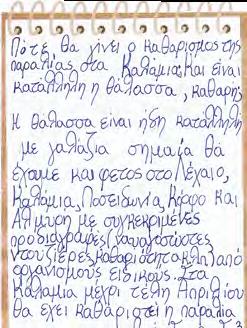 Πότε θα γίνει ο καθαρισμος της
παραλίας στα Καλάμια; Και είναι
κατάλληλη η θάλασσα, καθαρή;
Η θάλασσα είναι ήδη κατάλληλη
με γαλάζια σημαία θα
έχουμε και φετος στο Λέχαιο,
Καλάμια, Ποσειδωνία, Κόρφο και
Αλμυρη με συγκεκριμένες
προδιαγραφες (ναυαγοσώστες
ντουζιέρες, καθαριότητα κλπ) από
οργανισμούς ειδικούς. Στα
Καλάμια μέχρι τέλη Απριλίου
θα έχει καθαριστεί η παραλία.